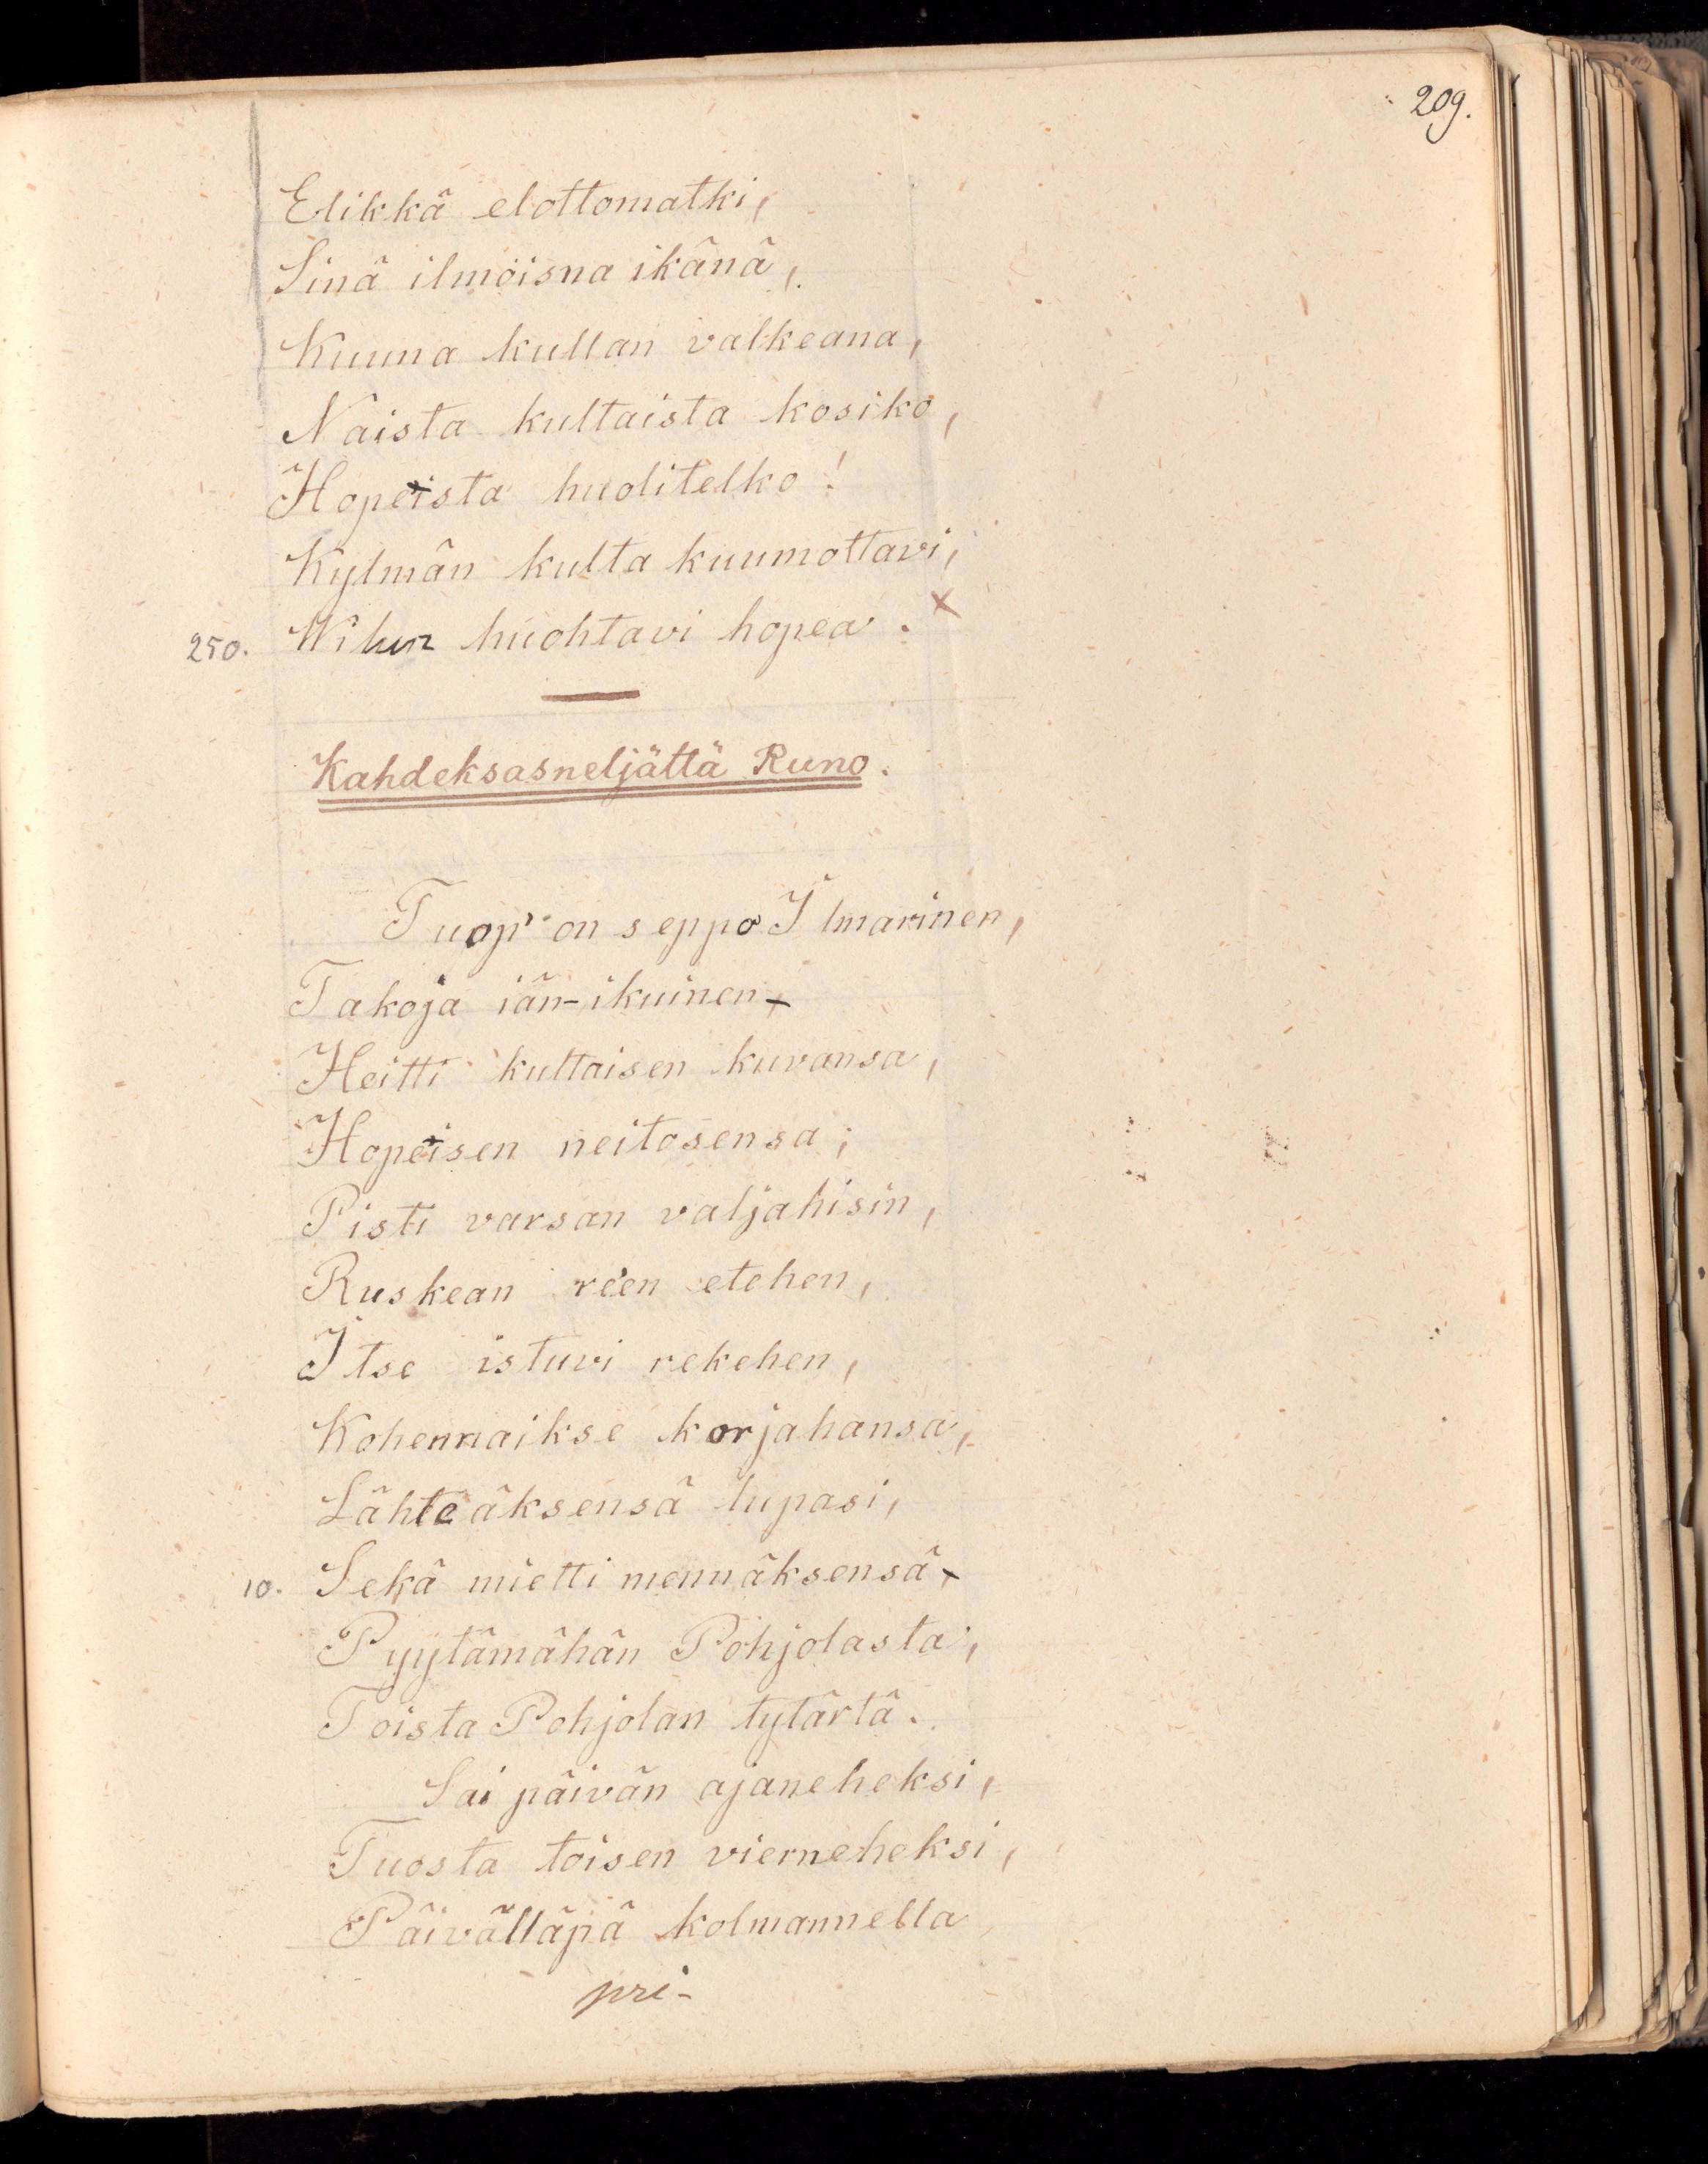 209.
Elikkä elottomatki,
Sinä ilmoisna ikänä,
Kuuna kullan valkeana,
Naista kultaista kosiko,
Hopeista huolitelko!
Kylmän kulta kuumottavi,
250. Wilun huohtavi hopea. x
Kahdeksasneljättä Runo.
Tuop' on seppo Ilmarinen,
Takoja iän-ikuinen,
Heitti kultaisen kuvansa,
Hopeisen neitosensa;
Pisti varsan valjahisin,
Ruskean re'en etehen,
Itse istuvi rekehen,
Kohennaikse korjahansa,
Lähteäksensä lupasi,
10. Sekä mietti mennäksensä,
Pyytämähän Pohjolasta,
Toista Pohjolan tytärtä.
Sai päivän ajaneheksi,
Tuosta toisen vierneheksi,
Päivälläpä kolmannella
pri-